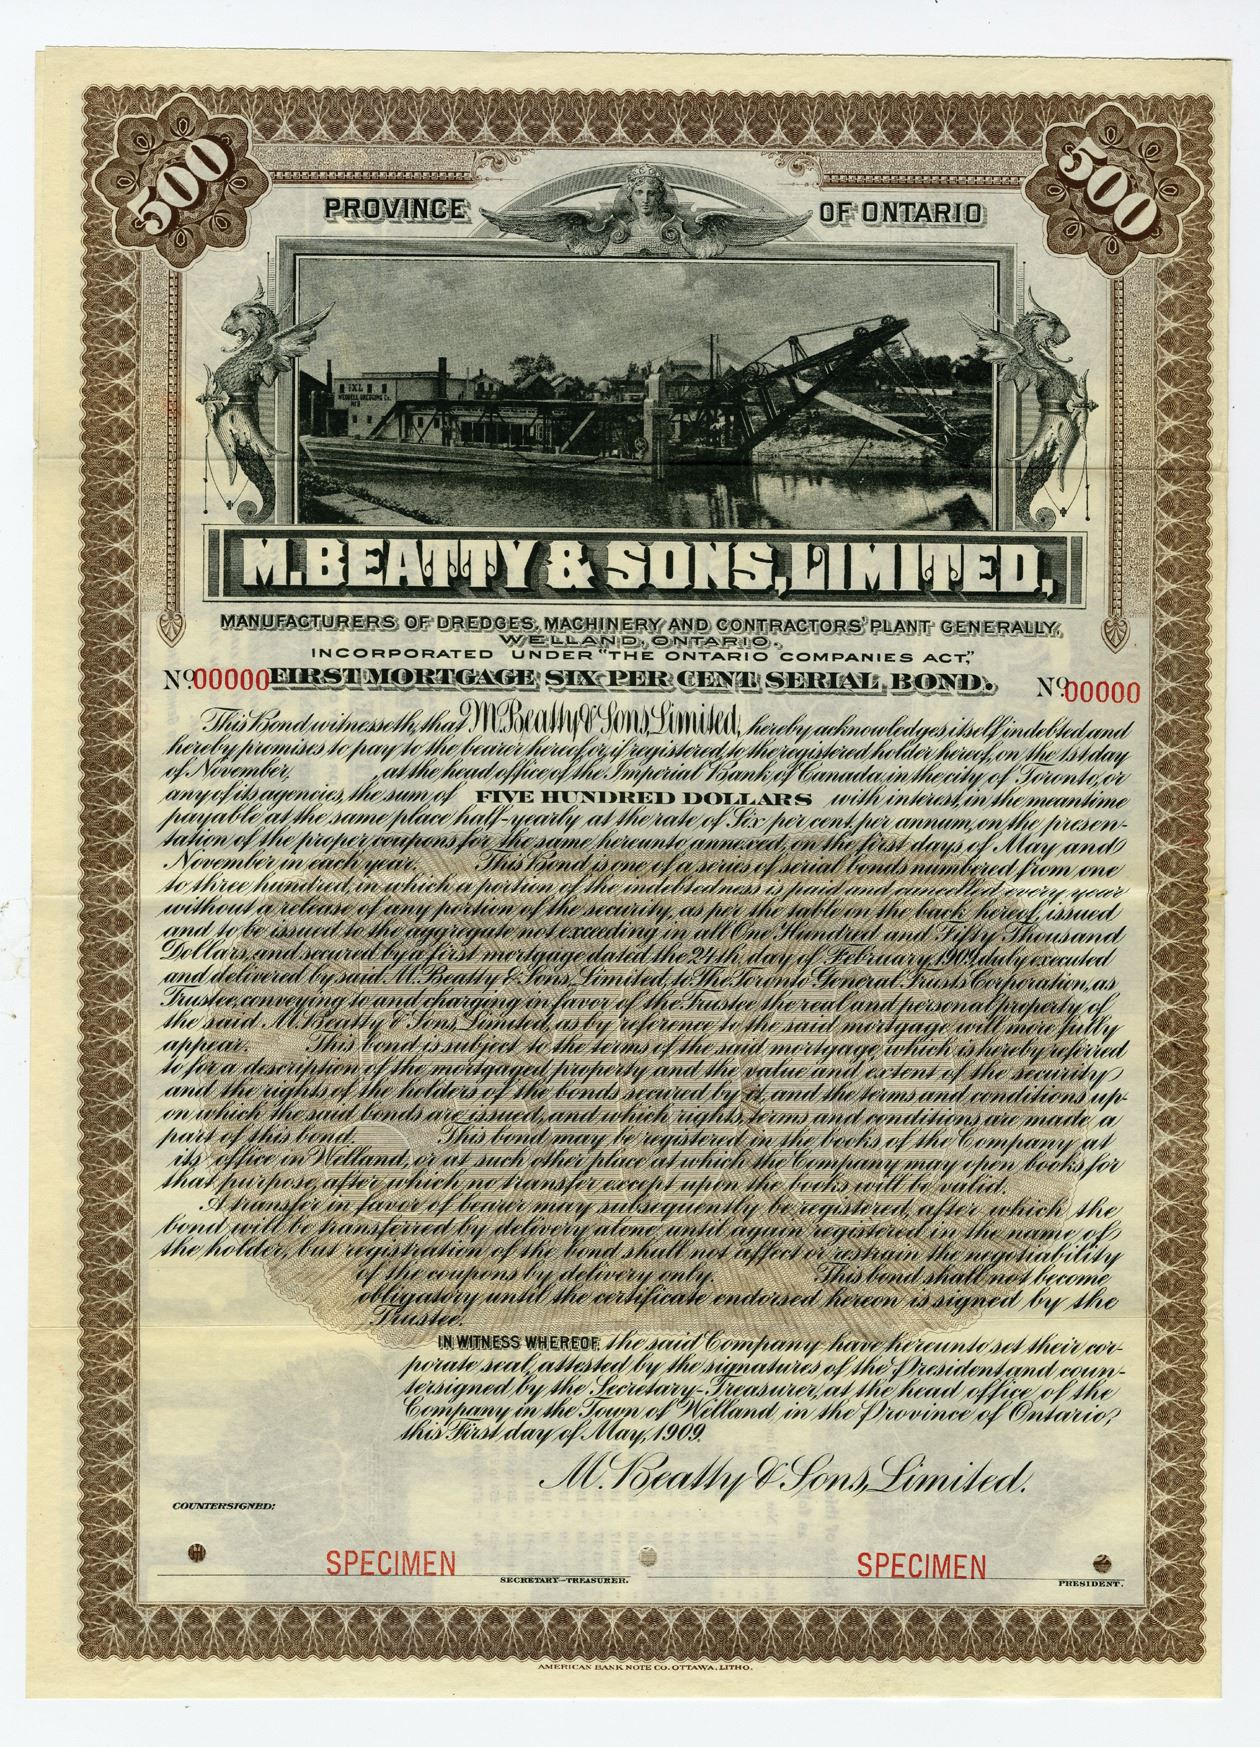 500
500
PROVINCE OF ONTARIO
IXL
WEDDELL DREDGING Co.
No 3
M. BEATTY & SONS, LIMITED,
MANUFACTURERS OF DREDGES, MACHINERY AND CONTRACTORS' PLANT GENERALLY,
WELLAND, ONTARIO.
INCORPORATED UNDER "THE ONTARIO COMPANIES ACT,"
No. 00000 FIRST MORTGAGE SIX PER CENT SERIAL BOND. No. 00000
This Bond witnesseth, that M. Beatty & Sons, Limited, hereby acknowledges itself indebted and
hereby promises to pay to the bearer hereof, or, if registered, to the registered holder hereof, on the 1st day
of November, , at the head office of the Imperial Bank of Canada, in the city of Toronto, or
any of its agencies, the sum of FIVE HUNDRED DOLLARS with interest, in the meantime
payable at the same place half-yearly at the rate of Six per cent. per annum, on the presen-
tation of the proper coupons for the same, hereunto annexed, on the first days of May and
November in each year. This Bond is one of a series of serial bonds numbered from one
to three hundred, in which a portion of the indebtedness is paid and cancelled every year
without a release of any portion of the security, as per the table on the back hereof, issued
and to be issued to the aggregate not exceeding in all One Hundred and Fifty Thousand
Dollars, and secured by a first mortgage dated the 24th day of February, 1909, duly executed
and delivered by said M. Beatty & Sons, Limited, to The Toronto General Trusts Corporation, as
Trustee, conveying to and charging in favor of the Trustee the real and personal property of
the said M. Beatty & Sons, Limited, as by reference to the said mortgage will more fully
appear. This bond is subject to the terms of the said mortgage, which is hereby referred
to for a description of the mortgaged property and the value and extent of the security
and the rights of the holders of the bonds secured by it, and the terms and conditions up-
on which the said bonds are issued, and which rights, terms and conditions are made a
part of this bond. This bond may be registered in the books of the Company at
its office in Welland, or at such other place at which the Company may open books for
that purpose, after which no transfer except upon the books will be valid.
A transfer in favor of bearer may subsequently be registered, after which the
bond will be transferred by delivery alone until again registered in the name of
the holder, but registration of the bond shall not affect or restrain the negotiability
of the coupons by delivery only. This bond shall not become
obligatory until the certificate endorsed hereon is signed by the
Trustee.
IN WITNESS WHEREOF, the said Company have hereunto set their cor-
porate seal, attested by the signatures of the President and coun-
tersigned by the Secretary-Treasurer, at the head office of the
Company in the Town of Welland, in the Province of Ontario,
this First day of May, 1909.
M. Beatty & Sons, Limited.
COUNTERSIGNED:
SPECIMEN SPECIMEN
SECRETARY-TREASURER. PRESIDENT.
AMERICAN BANK NOTE CO. OTTAWA, LITHO.